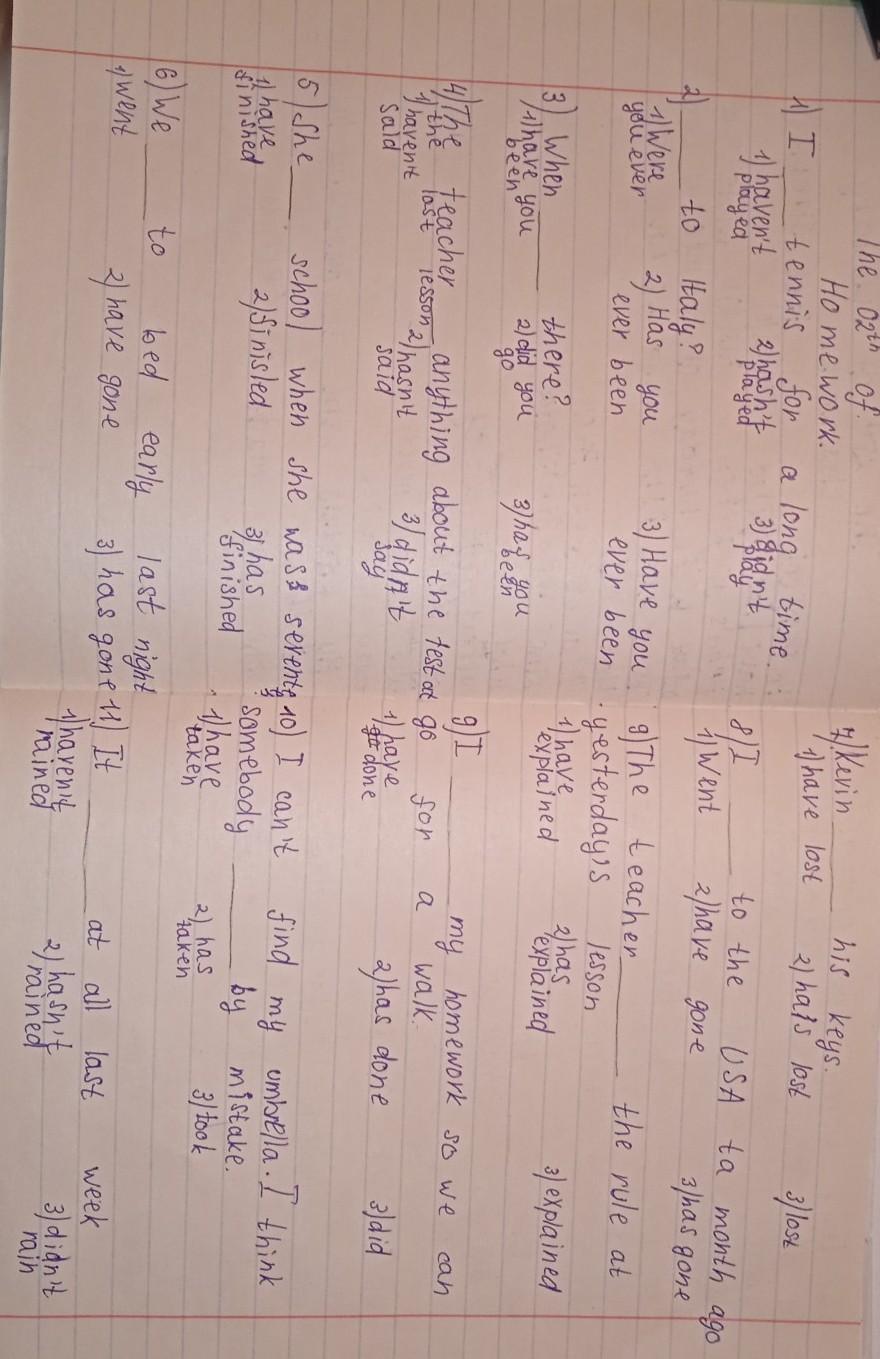 The 02th of
Homework.
1) I ____ tennis for a long time.
1) haven't played 2) hasn't played 3) didn't play
2) ____ to Italy?
1) Were you ever 2) Has you ever been 3) Have you ever been
3) When ____ there?
1) have you been 2) did you go 3) has you been
4) The teacher ____ anything about the test at the last lesson
1) havent said 2) hasn't said 3) didn't say
5) She ____ school when she was seventy
1) have finished 2) finisled 3) has finished
6) We ____ to bed early last night
1) went 2) have gone 3) has gone
7) Kevin ____ his keys.
1) have lost 2) has lost 3) lost
8) I ____ to the USA ta month ago
1) Went 2) have gone 3) has gone
9) The teacher ____ the rule at
yesterday's lesson
1) have explained 2) has explained 3) explained
9) I ____ my homework so we can
go for a walk.
1) have done 2) has done 3) did
10) I can't find my umbrella. I think
somebody ____ by mistake.
1) have taken 2) has taken 3) took
11) It ____ at all last week
1) haven't rained 2) hasn't rained 3) didn't rain